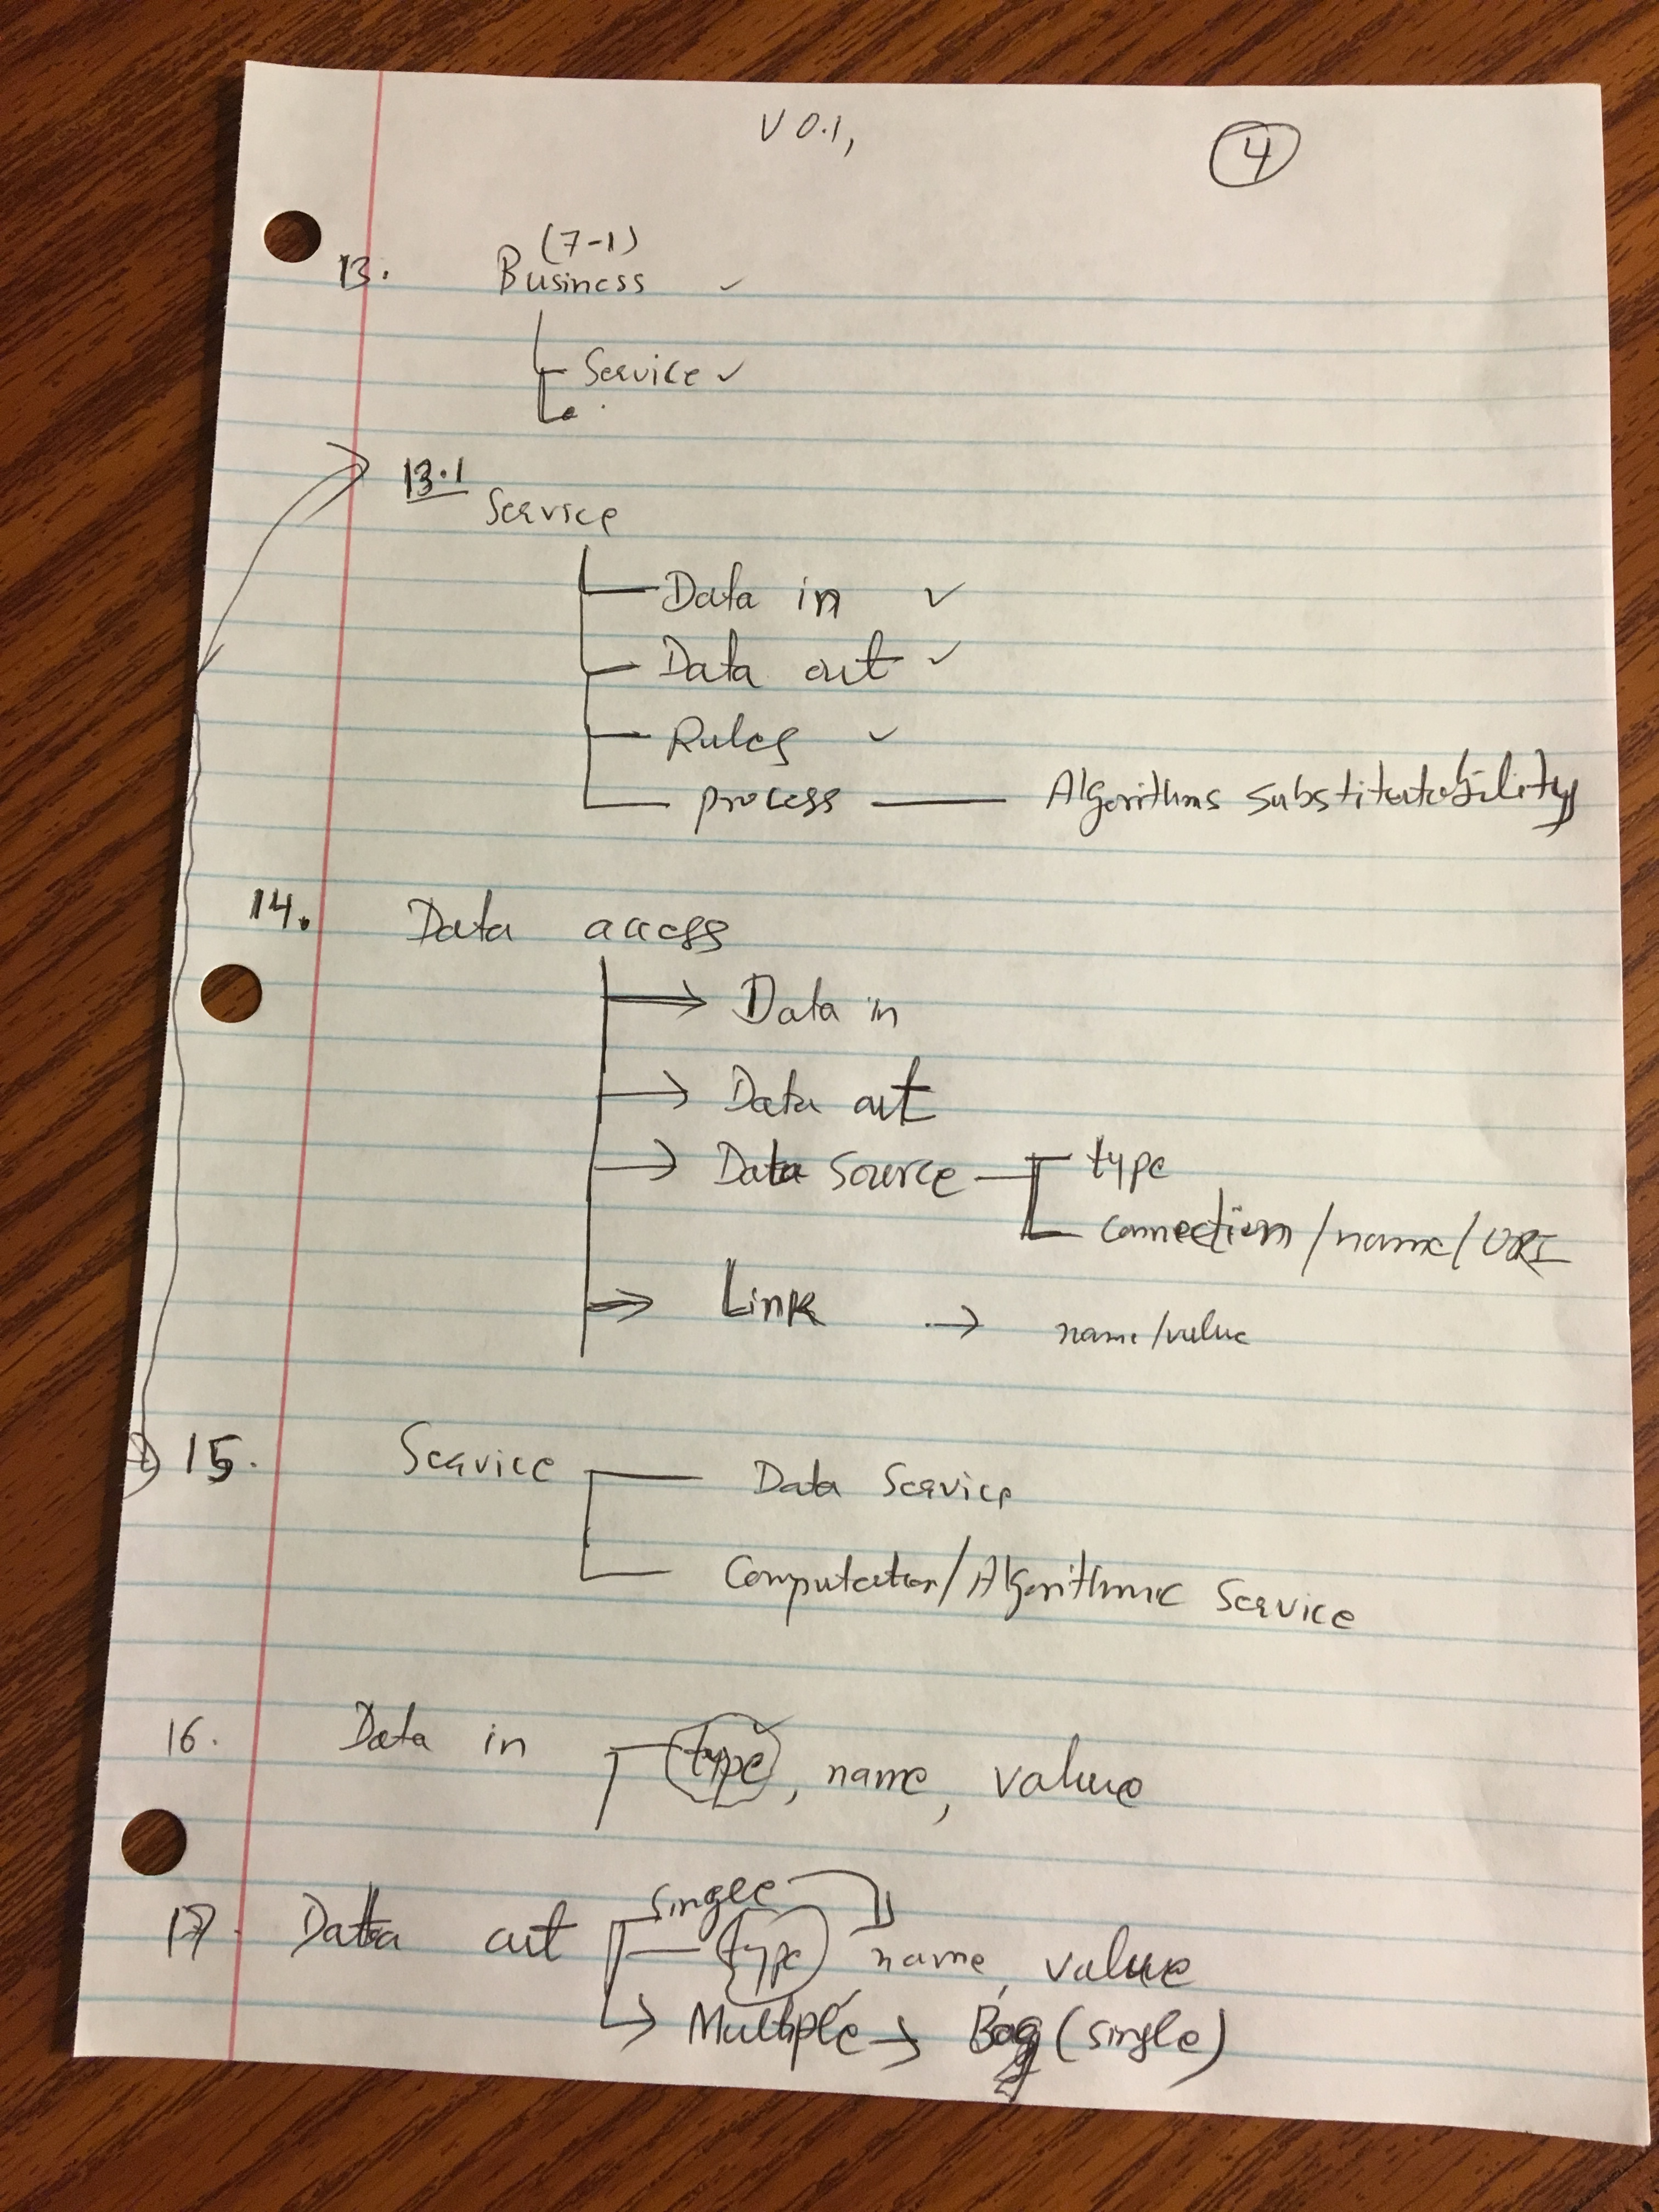 V 0.1, 4
(7-1)
13. Business ✓
Service ✓
13.1
Service
Data in ✓
Data out ✓
Rules ✓
process — Algorithms substitutability
14. Data access
→ Data in
→ Data out
→ Data Source — type
connection/name/URI
→ Link → name/value
15. Service — Data Service
Computation/Algorithmic Service
16. Data in type, name, value
single
17. Data out type name, value
→ Multiple → Bag (single)